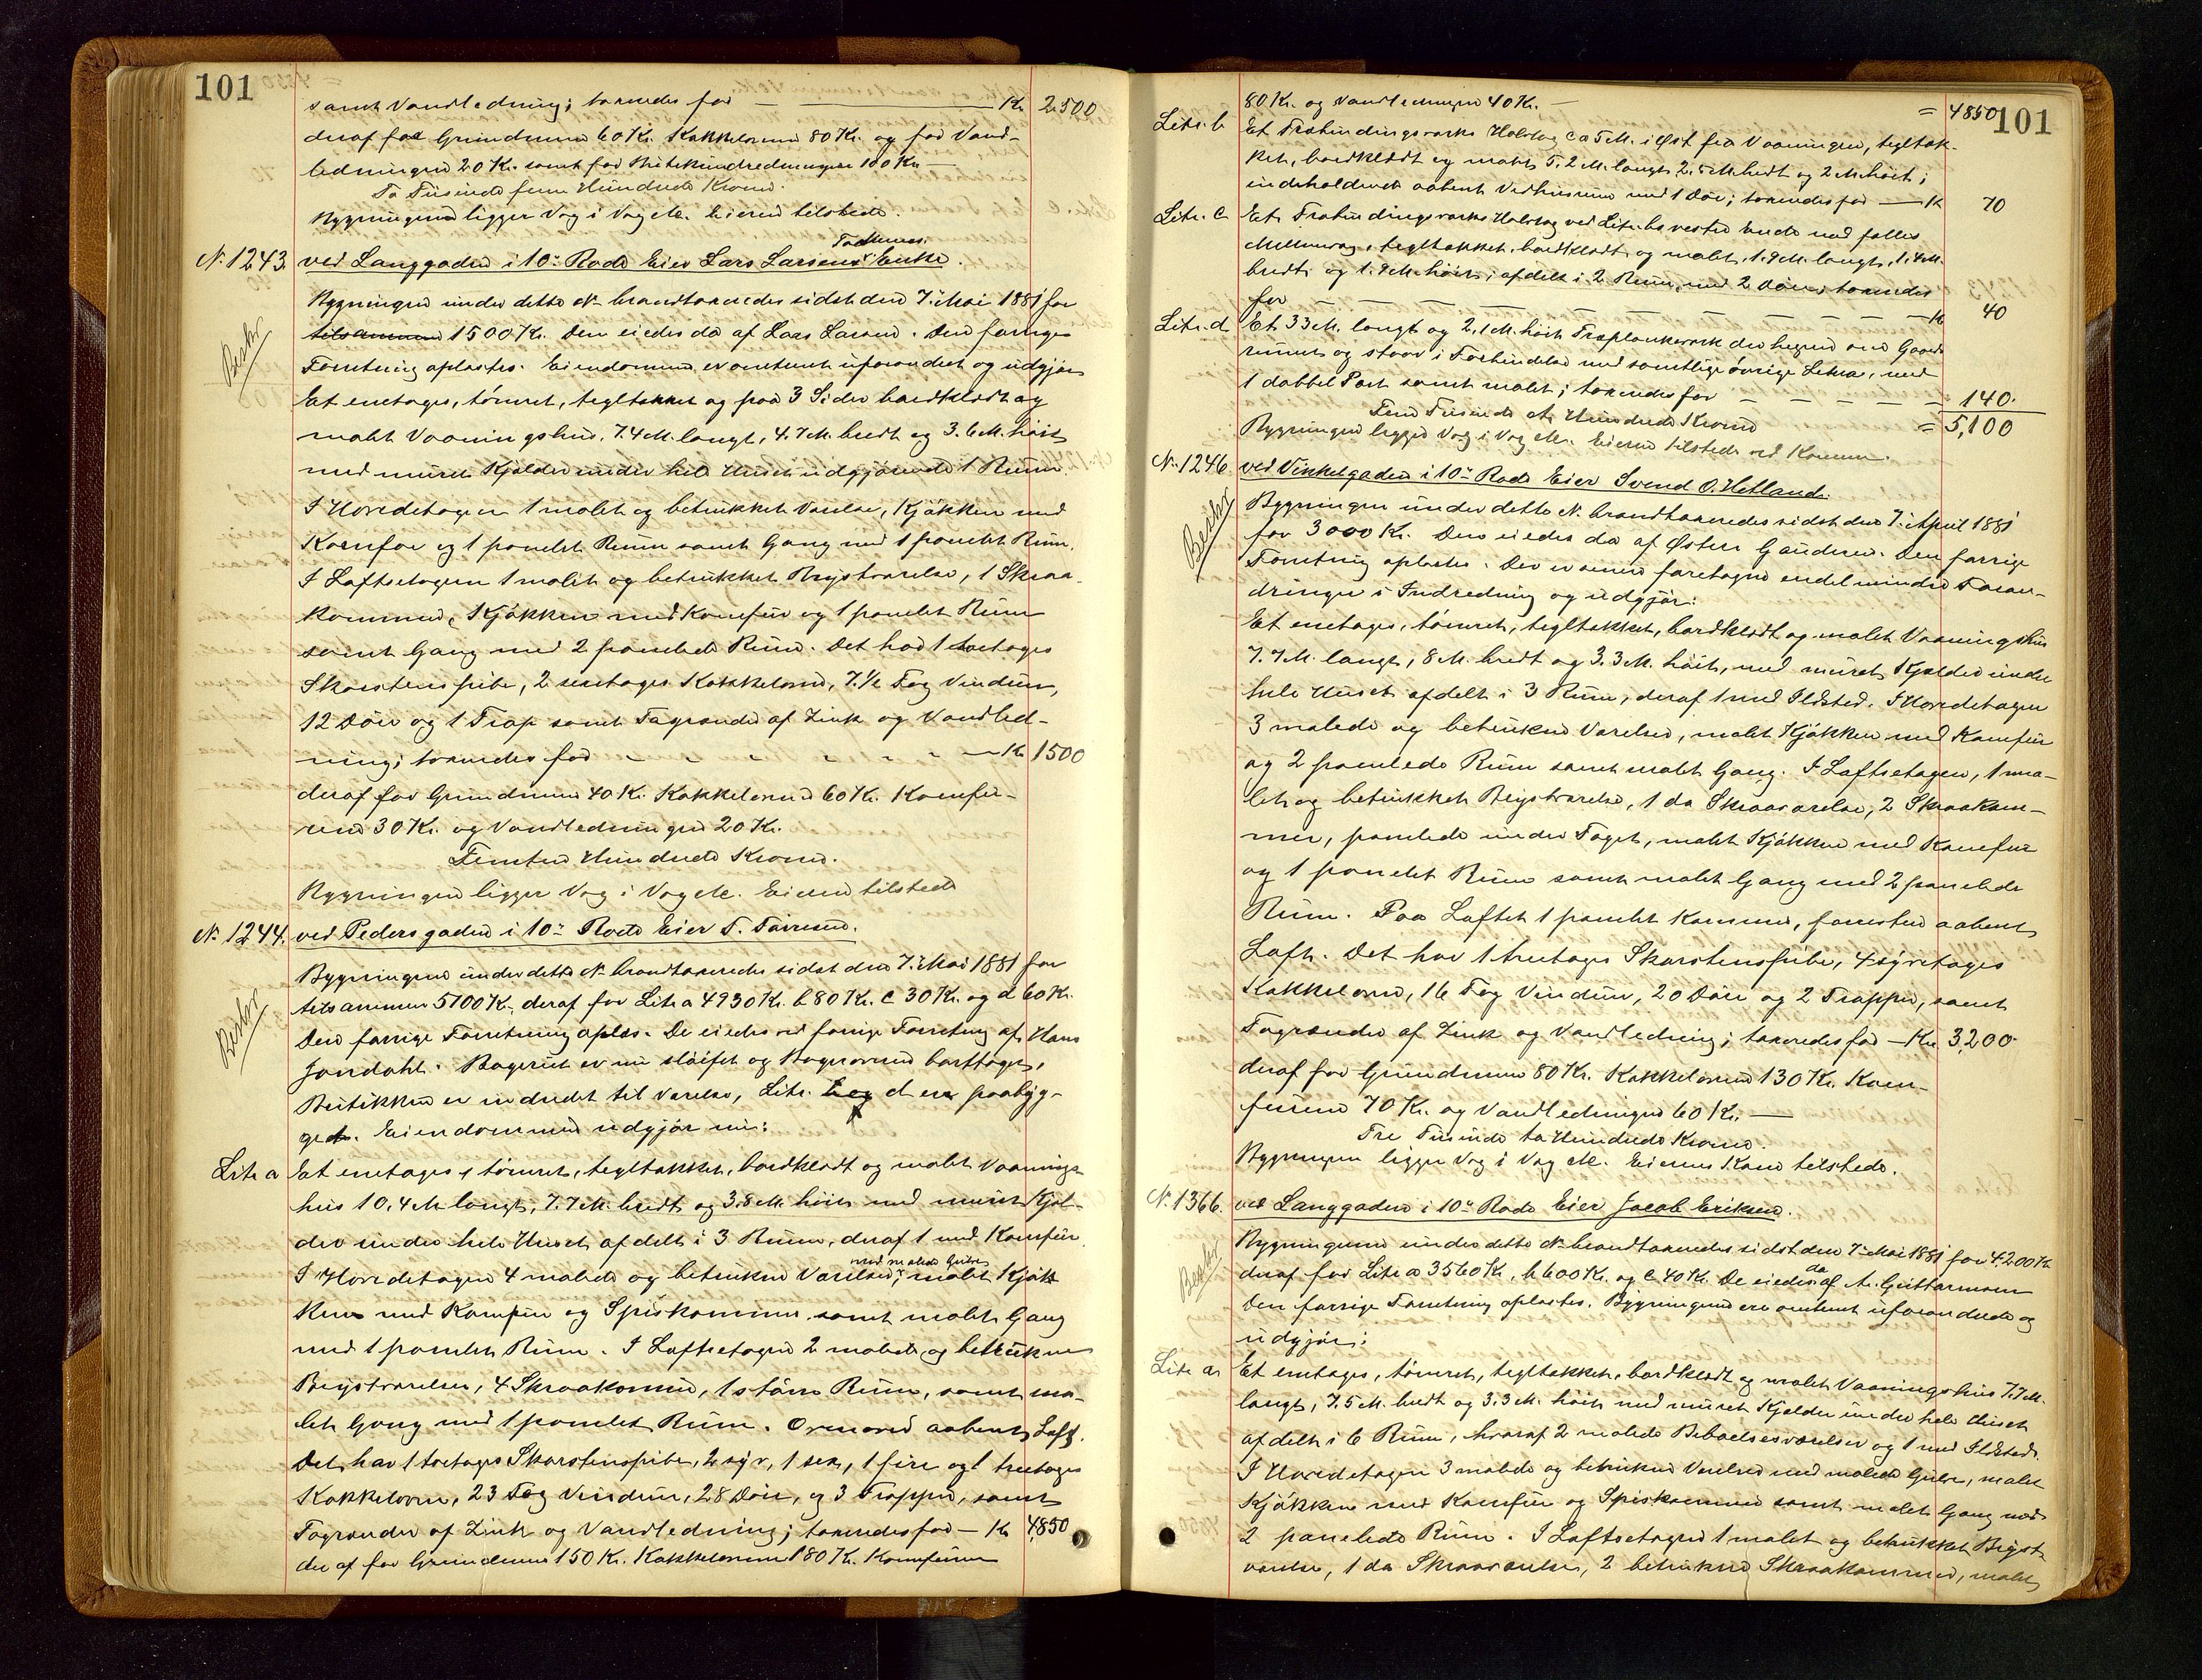 101
samt Vandledning; taxeredes for — Kr 2500
deraf for Grundmur 60 Kr. Kakkelovne 80 Kr. og for Vand-
ledningen 20 Kr. samt for Butikindredningen 100 Kr. —
To Tusinde fem Hundrede Kroner.
Bygningen ligger Vag i Vag Me. Eieren tilstede.
N. 1243. ved Langgaden i 10de Rode Eier Lars Larsens Enke.
Bygningen under dette No brandtaxeredes sidst den 7. Mai 1881 for
tilsammen 1500 Kr. Den eiedes da af Lars Larsen. Den forrige
Bester
Forretning oplæstes. Eiendommen er omtrent uforandret og udgjør
Et enetages, tømret, tegltækket og paa 3 Sider bordklædt og
malet Vaaningshus, 7.4 M. langt, 4.7 M. bredt og 3.6 M. høit
med muret Kjelder under hele Huset udgjørende 1 Rum.
I Hovedetagen 1 malet og betrukket Værelse, Kjøkken med
Komfur og 1 panelet Rum samt Gang med 1 panelet Rum.
I Loftsetagen 1 malet og betrukket Brystværelse, 1 Skraa-
kammer, Kjøkken med Komfur og 1 panelet Rum
samt Gang med 2 panelede Rum. Det har 1 toetages
Skorstenspibe, 2 enetages Kakkelovne, 7½ Fag Vinduer,
12 Døre og 1 Trap samt Tagrender af Zink og Vandled-
ning; taxeredes for — Kr 1500
deraf for Grundmur 40 Kr. Kakkelovne 60 Kr. Komfu-
rene 30 Kr. og Vandledningen 20 Kr.
Femten Hundrede Kroner.
Bygningen ligger Vag i Vag Me. Eieren tilstede
N. 1244. ved Pedersgaden i 10de Rode Eier T.
Bygningene under dette No brandtaxeredes sidst den 7. Mai 1881 for
tilsammen 5100 Kr. deraf for Litr a 4930 Kr. b 80 Kr. c 30 Kr. og d 60 Kr.
Bester
Den forrige Forretning oplæs. De eiedes ved forrige Forretning af Hans
Jondahl. Bageriet er nu sløifet og Bagerovnen borttaget,
Butikken er indredet til Værelse, Litr. d er paabyg-
get. Eiendommen udgjør nu:
Litr a Et enetages, tømret, tegltækket, bordklædt og malet Vaanings-
hus 10.4 M langt, 7.7 M. bredt og 3.8 M. høit med muret Kjel-
der under hele Huset afdelt i 3 Rum, deraf 1 med Komfur.
I Hovedetagen 4 malede og betrukne Værelser, med malede Gulve, malet Kjøk-
ken med Komfur og Spiskammer, samt malet Gang
med 1 panelet Rum. I Loftsetagen 2 malede og betrukne
Brystværelser, 4 Skraakammer, 1 større Rum, samt ma-
let Gang med 1 panelet Rum. Ovenover aabent Loft.
Det har 1 toetages Skorstenspibe, 2 syv, 1 sex, 1 fire og 1 treetages
Kakkelovne, 23 Fag Vinduer, 28 Døre, og 3 Trapper, samt
Tagrender af Zink og Vandledning; taxeredes for — Kr 4,850
deraf for Grundmur 150 Kr. Kakkelovnene 180 Kr. Komfurene
80 Kr. og Vandledningen 40 Kr. — = 4850
101
Litr. b Et Træbindingsværks Halvtag ca 5 M. i Øst fra Vaaningen, tegltæk-
ket, bordklædt og malet, 5.2 M. langt, 2.5 M. bredt og 2 M. høit;
indeholdende aabent Vedhusrum med 1 Dør; taxeredes for — Kr 70
Litr. c Et Træbindingsværks Halvtag ved Litr. bs vestre Ende med fælles
Mellemvæg, tegltækket, bordklædt og malet, 1.9 M. langt, 1.4 M.
bredt og 1.9 M. høit; afdelt i 2 Rum, med 2 Døre; taxeredes
for — Kr 40
Litr. d Et 33 M. langt og 2.1 M. høit Træplankeværk der hegner om Gaards-
rummet og staar i Forbindelse med samtlige øvrige Litra, med
1 dobbel Port samt malet; taxeredes for — 140.
Fem Tusinde et Hundrede Kroner = 5,100
Bygningen ligger Vag i Vag Me. Eieren tilstede ved Konen.
N. 1246. ved Vinkelgaden i 10de Rode Eier Svend O. Hetland.
Bygningen under dette No brandtaxeredes sidst den 7. April 1881
Bester
for 3000 Kr. Den eiedes da af Østen Gaudesen. Den forrige
Forretning oplæstes. Der er senere foretagne endel mindre Foran-
dringer i Indredning og udgjør:
Et enetages, tømret, tegltækket, bordklædt og malet Vaaningshus
7.7 M. langt, 8 M. bredt og 3.3 M. høit, med muret Kjelder under
hele Huset afdelt i 3 Rum, deraf 1 med Ildsted. I Hovedetagen
3 malede og betrukne Værelser, malet Kjøkken med Komfur
og 2 panelede Rum samt malet Gang. I Loftsetagen, 1 ma-
let og betrukket Brystværelse, 1 do Skraaværelse, 2 Skraakam-
mer, panelede under Taget, malet Kjøkken med Komfur
og 1 panelet Rum samt malet Gang med 2 panelede
Rum. Paa Loftet 1 panelet Kammer, forresten aabent
Loft. Det har 1 treetages Skorstenspibe, 4 syvetages
Kakkelovne, 16 Fag Vinduer, 20 Døre og 2 Trapper, samt
Tagrender af Zink og Vandledning; taxeredes for — Kr. 3,200
deraf for Grundmur 80 Kr. Kakkelovne 130 Kr. Kom-
furene 70 Kr. og Vandledningen 60 Kr. —
Tre Tusinde to Hundrede Kroner.
Bygningen ligger Vag i Vag Me. Eierens Kone tilstede.
N. 1366. ved Langgaden i 10de Rode Eier Jacob Eriksen.
Bygningerne under dette No brandtaxeredes sidst den 7de Mai 1881 for 4200 Kr
Bester
deraf for Litr a 3560 Kr, b 600 Kr. og c 40 Kr. De eiedes da af A. Guttormsen
Den forrige Forretning oplæstes. Bygningerne ere omtrent uforandrede og
udgjør:
Litr a. Et enetages, tømret, tegltækket, bordklædt og malet Vaaningshus 7.7 M.
langt, 7.5 M. bredt og 3.3 M. høit med muret Kjelder under hele Huset
afdelt i 6 Rum, hvoraf 2 malede Beboelsesværelser og 1 med Ildsted.
I Hovedetagen 3 malede og betrukne Værelser med malede Gulve, malet
Kjøkken med Komfur og Spiskammer samt malet Gang med
2 panelede Rum. I Loftsetagen 1 malet og betrukket Bryst-
værelse, 1 do Skraaværelse, 2 betrukne Skraakammer, malet